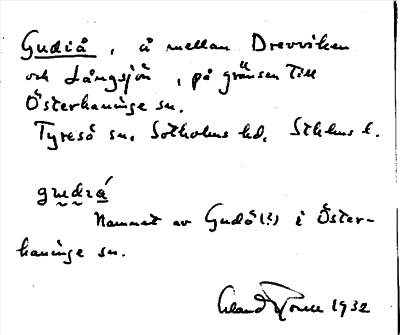 Gudiå, å mellan Drevviken
och Långsjön, på gränsen till
Österhaninge sn.
Tyresö sn, Sotholms hd, Sthlms l.
gudiá
Namnet av Gudö(?) i Öster-
haninge sn.
Erland 1932